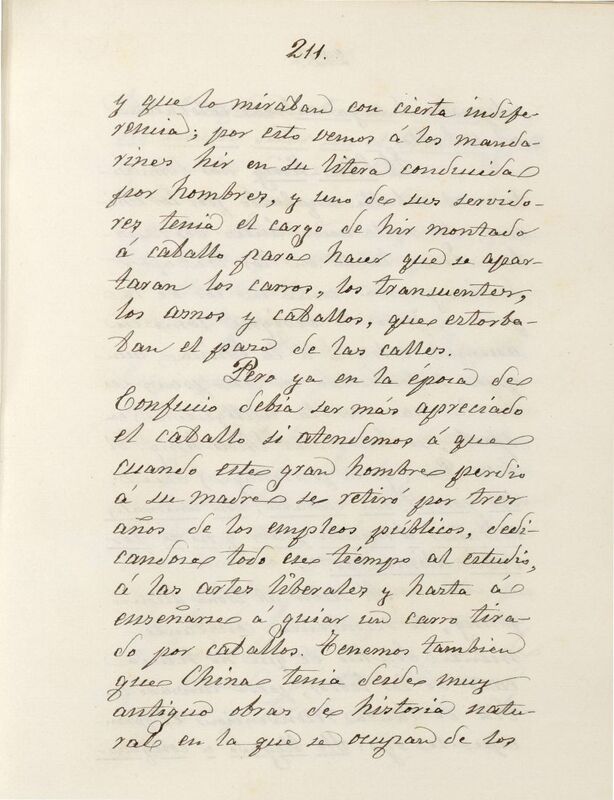 211.
y que lo miraban con cierta indife-
rencia; por esto vemos á los manda-
rines hir en su litera conducida
por hombres, y uno de sus servido-
res tenia el cargo de hir montado
á caballo para hacer que se apar-
taran los carros, los transuentes,
los asnos y caballos, que estorba-
ban el paso de las calles.
Pero ya en la época de
Confucio debia ser más apreciado
el caballo si atendemos á que
cuando este gran hombre perdio
á su madre se retiró por tres
años de los empleos públicos, dedi-
candose todo ese tiémpo al estudio,
á las artes liberales y hasta á
enseñarse á guiar un carro tira-
do por caballos. Tenemos tambien
que China tenia desde muy
antiguo obras de historia natu-
ral en la que se ocupan de los